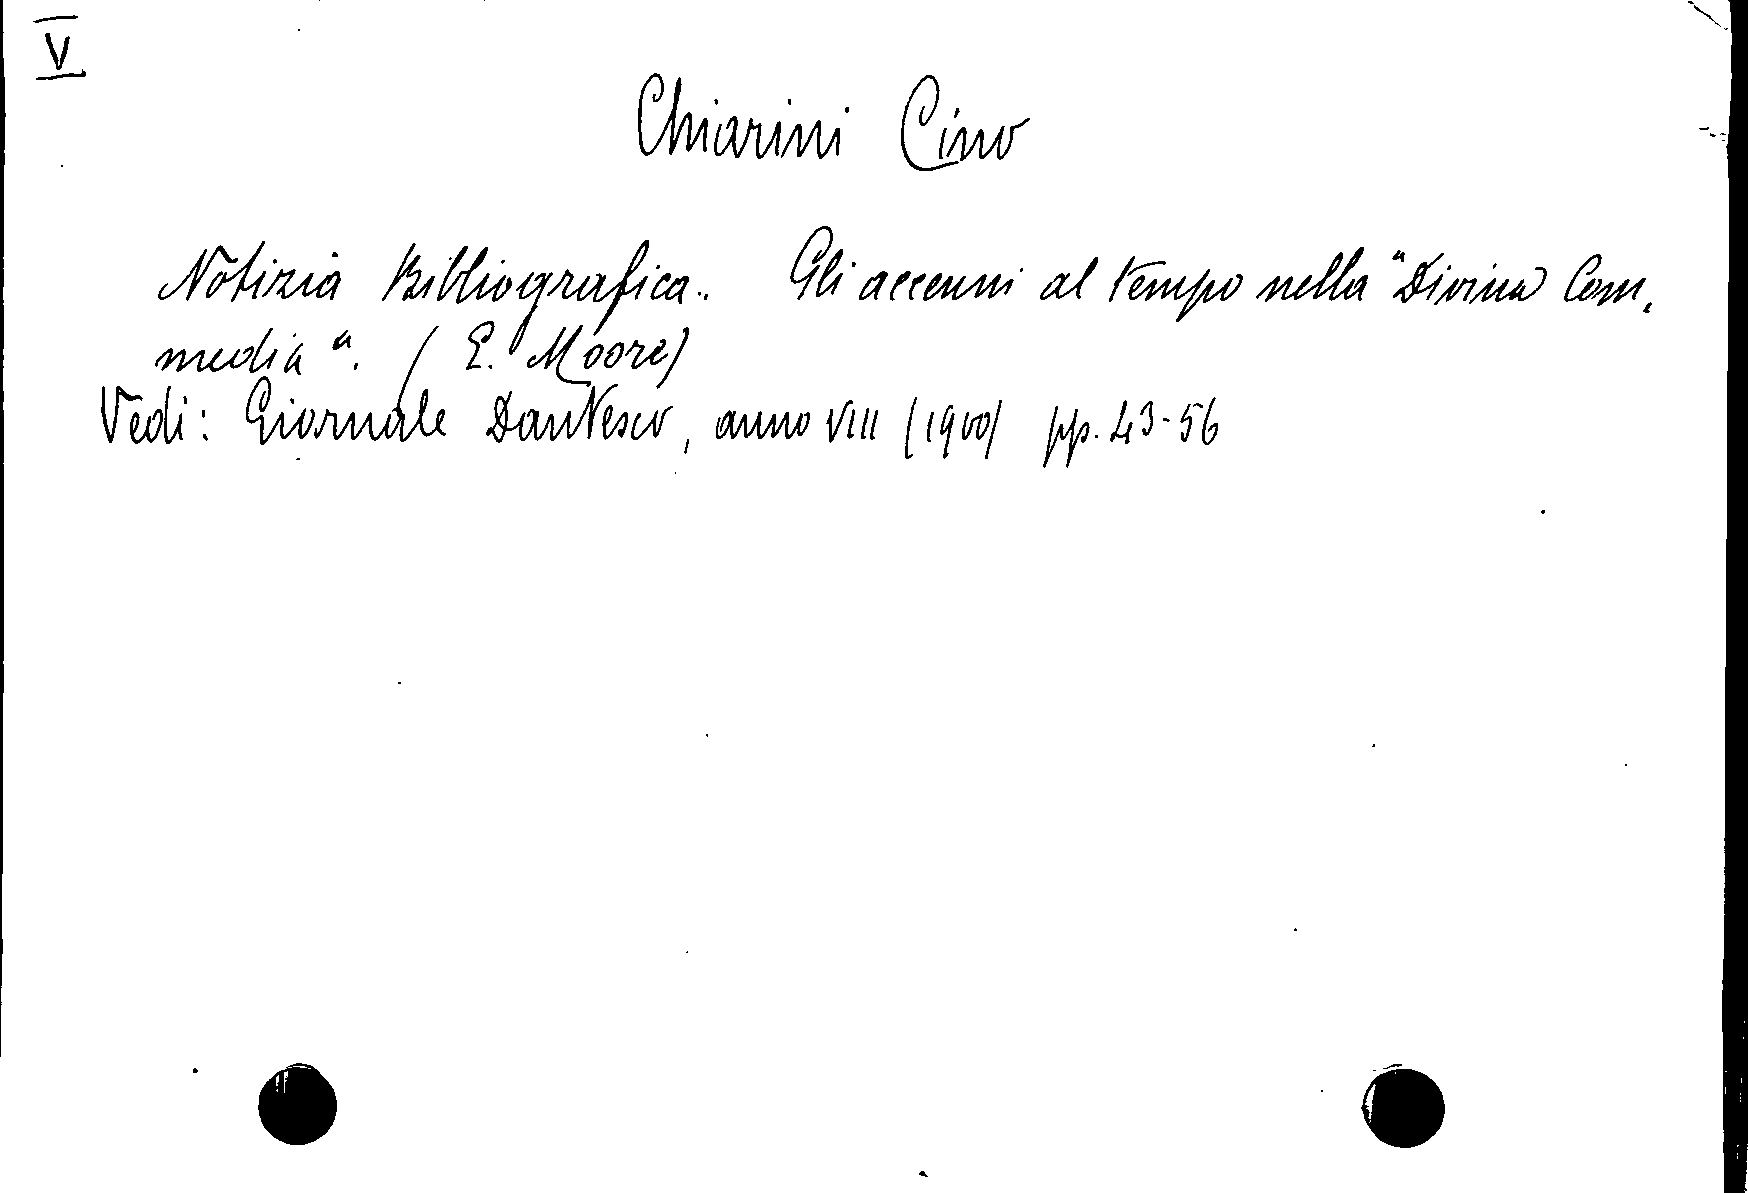 V
Chiarini Cino
Notizia Bibliografica.. Gli accenni al tempo nella "Divina Com,
media". ( E. Moore)
Vedi: Giornale Dantesco, anno VIII (1900) pp. 43-56